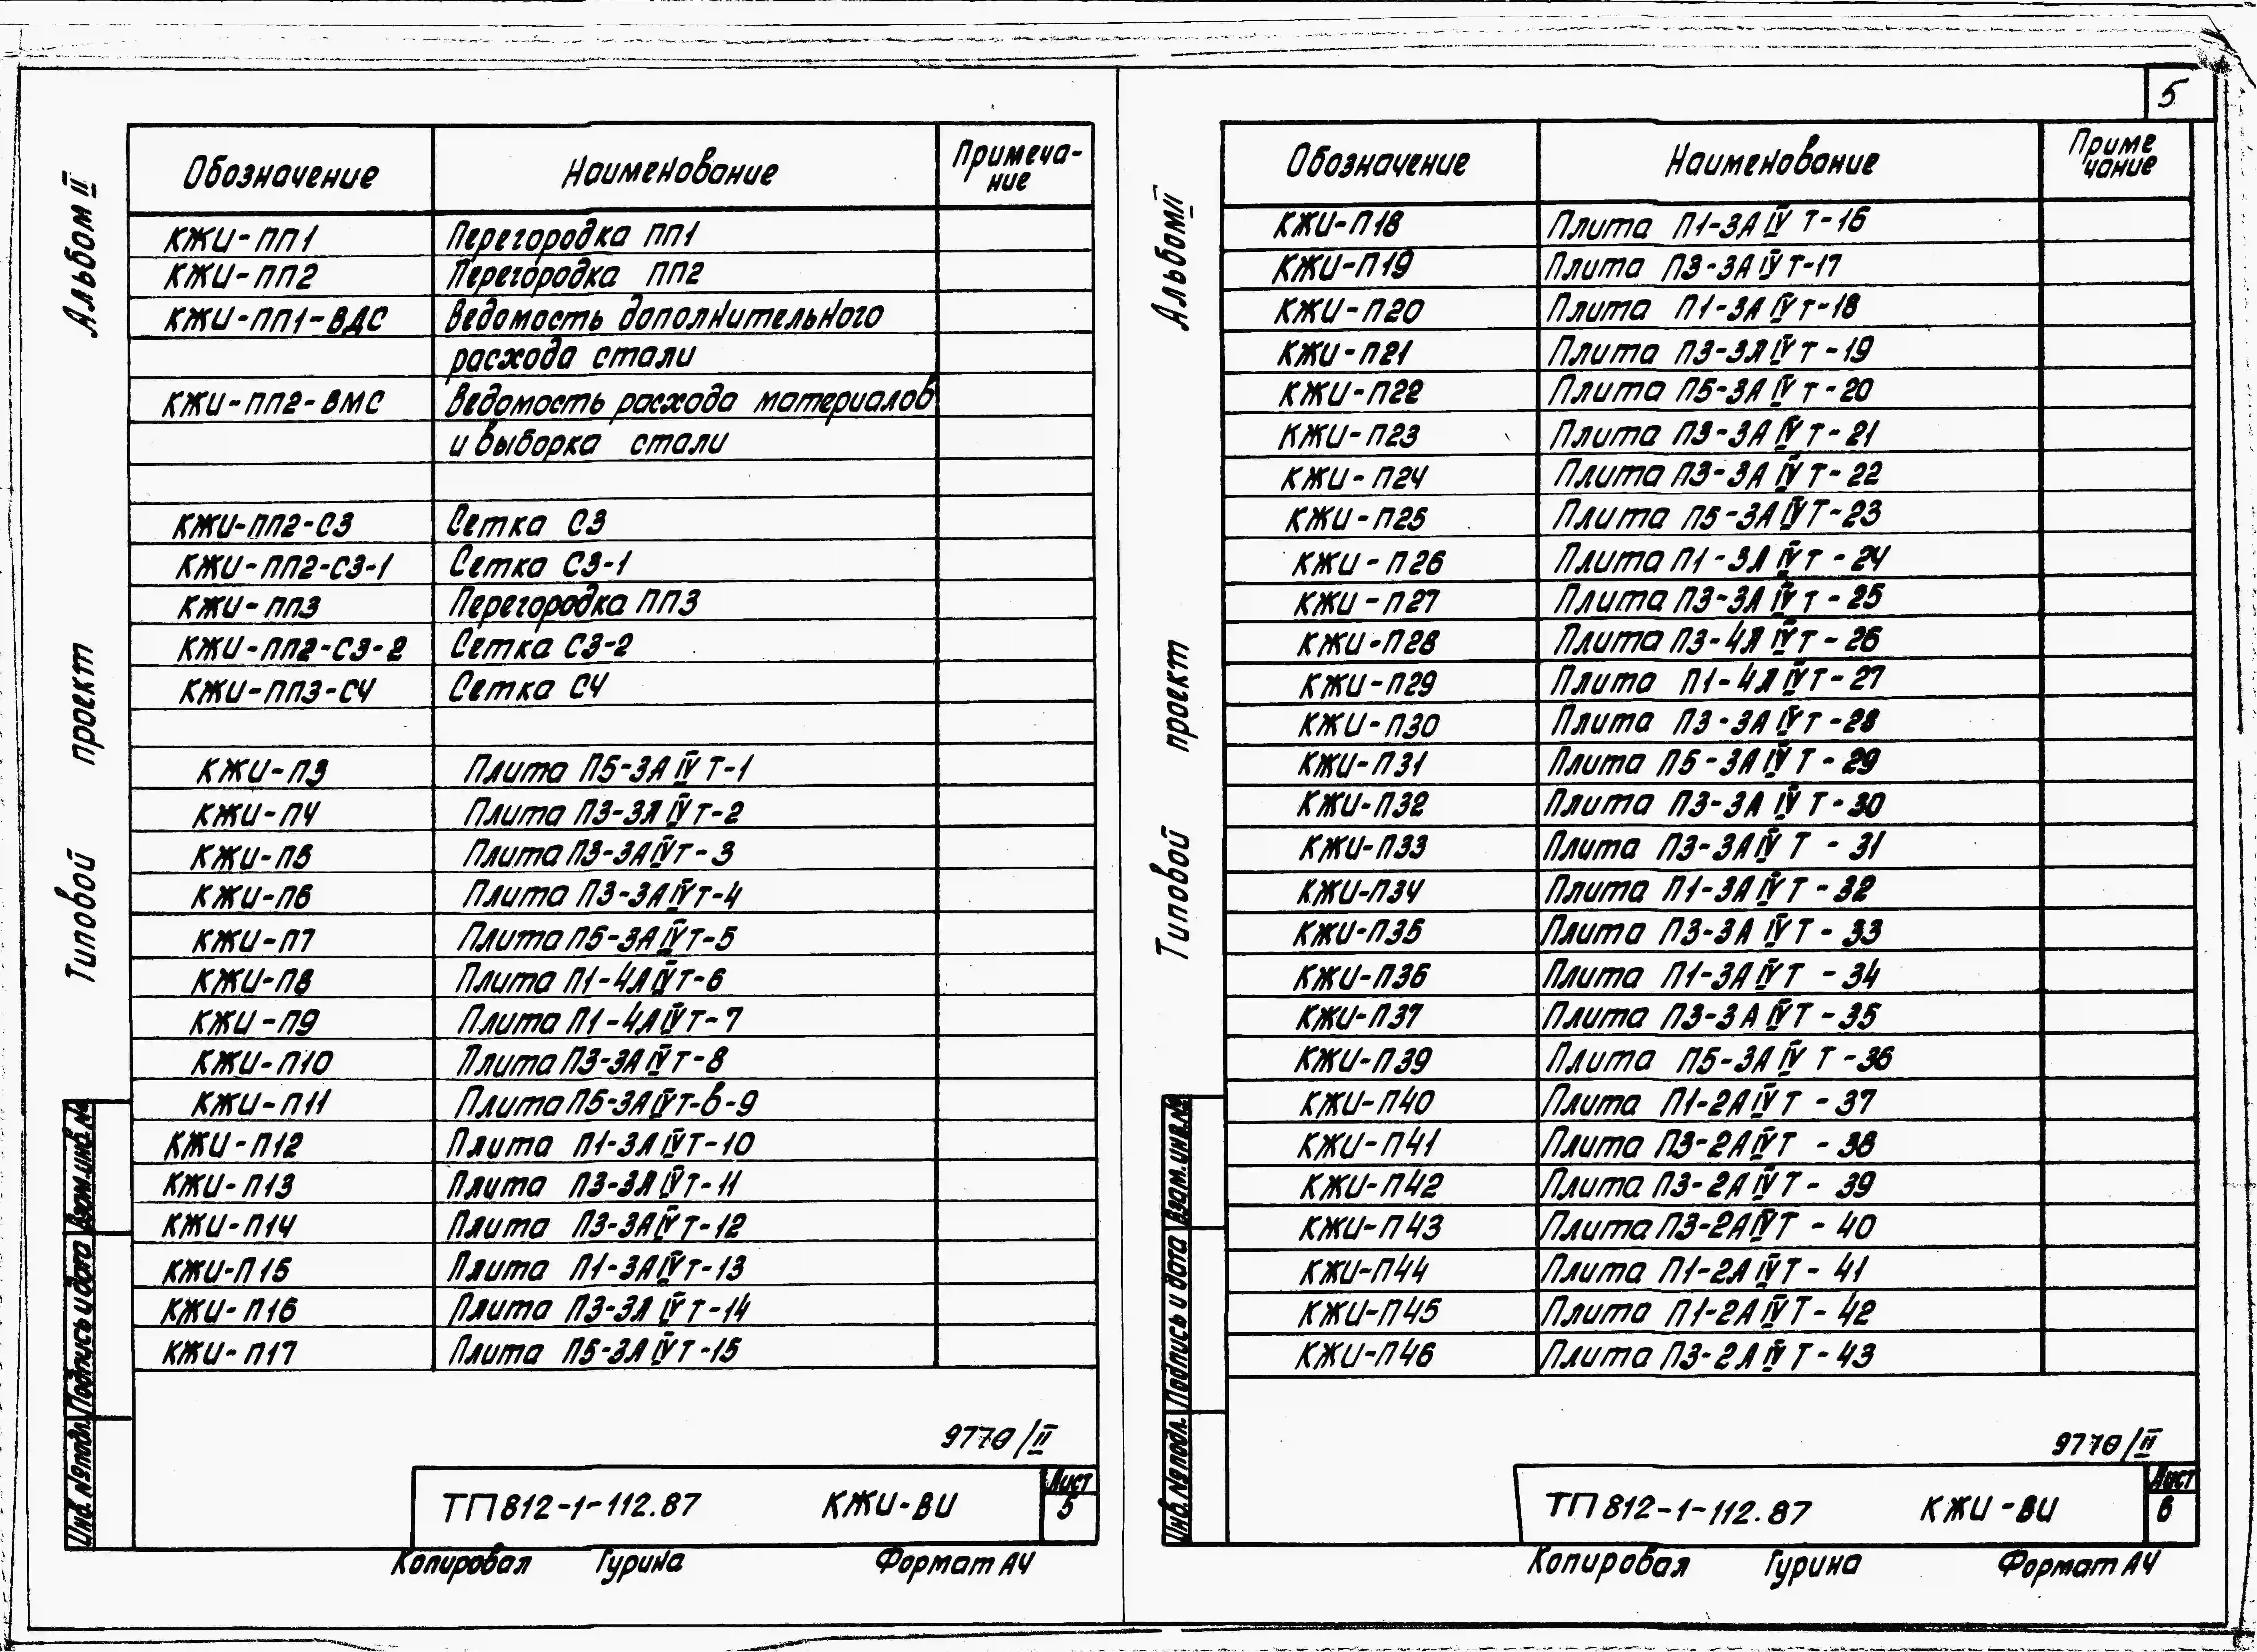 5
Альбом II
Типовой проект
Обозначение Наименование Примеча-
ние
КЖИ-ПП1 Перегородка ПП1
КЖИ-ПП2 Перегородка ПП2
КЖИ-ПП1-ВДС Ведомость дополнительного
расхода стали
КЖИ-ПП2-ВМС Ведомость расхода материалов
и выборка стали
КЖИ-ПП2-С3 Сетка С3
КЖИ-ПП2-С3-1 Сетка С3-1
КЖИ-ПП3 Перегородка ПП3
КЖИ-ПП2-С3-2 Сетка С3-2
КЖИ-ПП3-С4 Сетка С4
КЖИ-П3 Плита П5-3АIVТ-1
КЖИ-П4 Плита П3-3АIVТ-2
КЖИ-П5 Плита П3-3АIVТ-3
КЖИ-П6 Плита П3-3АIVТ-4
КЖИ-П7 Плита П5-3АIVТ-5
КЖИ-П8 Плита П1-4АIVТ-6
КЖИ-П9 Плита П1-4АIVТ-7
КЖИ-П10 Плита П3-3АIVТ-8
КЖИ-П11 Плита П5-3АIVТ-в-9
КЖИ-П12 Плита П1-3АIVТ-10
КЖИ-П13 Плита П3-3АIVТ-11
КЖИ-П14 Плита П3-3АIVТ-12
КЖИ-П15 Плита П1-3АIVТ-13
КЖИ-П16 Плита П3-3АIVТ-14
КЖИ-П17 Плита П5-3АIVТ-15
Взам.инв.№
Подпись и дата
Инв.№подл.
9770/II
ТП 812-1-112.87 КЖИ-ВИ Лист
5
Копировал Гурина Формат А4
Альбом II
Типовой проект
Обозначение Наименование Приме
чание
КЖИ-П18 Плита П1-3АIVТ-16
КЖИ-П19 Плита П3-3АIVТ-17
КЖИ-П20 Плита П1-3АIVТ-18
КЖИ-П21 Плита П3-3АIVТ-19
КЖИ-П22 Плита П5-3АIVТ-20
КЖИ-П23 Плита П3-3АIVТ-21
КЖИ-П24 Плита П3-3АIVТ-22
КЖИ-П25 Плита П5-3АIVТ-23
КЖИ-П26 Плита П1-3АIVТ-24
КЖИ-П27 Плита П3-3АIVТ-25
КЖИ-П28 Плита П3-4АIVТ-26
КЖИ-П29 Плита П1-4АIVТ-27
КЖИ-П30 Плита П3-3АIVТ-28
КЖИ-П31 Плита П5-3АIVТ-29
КЖИ-П32 Плита П3-3АIVТ-30
КЖИ-П33 Плита П3-3АIVТ-31
КЖИ-П34 Плита П1-3АIVТ-32
КЖИ-П35 Плита П3-3АIVТ-33
КЖИ-П36 Плита П1-3АIVТ-34
КЖИ-П37 Плита П3-3АIVТ-35
КЖИ-П39 Плита П5-3АIVТ-36
КЖИ-П40 Плита П1-2АIVТ-37
КЖИ-П41 Плита П3-2АIVТ-38
КЖИ-П42 Плита П3-2АIVТ-39
КЖИ-П43 Плита П3-2АIVТ-40
КЖИ-П44 Плита П1-2АIVТ-41
КЖИ-П45 Плита П1-2АIVТ-42
КЖИ-П46 Плита П3-2АIVТ-43
Взам.инв.№
Подпись и дата
Инв.№подл.
9770/II
ТП 812-1-112.87 КЖИ-ВИ Лист
6
Копировал Гурина Формат А4